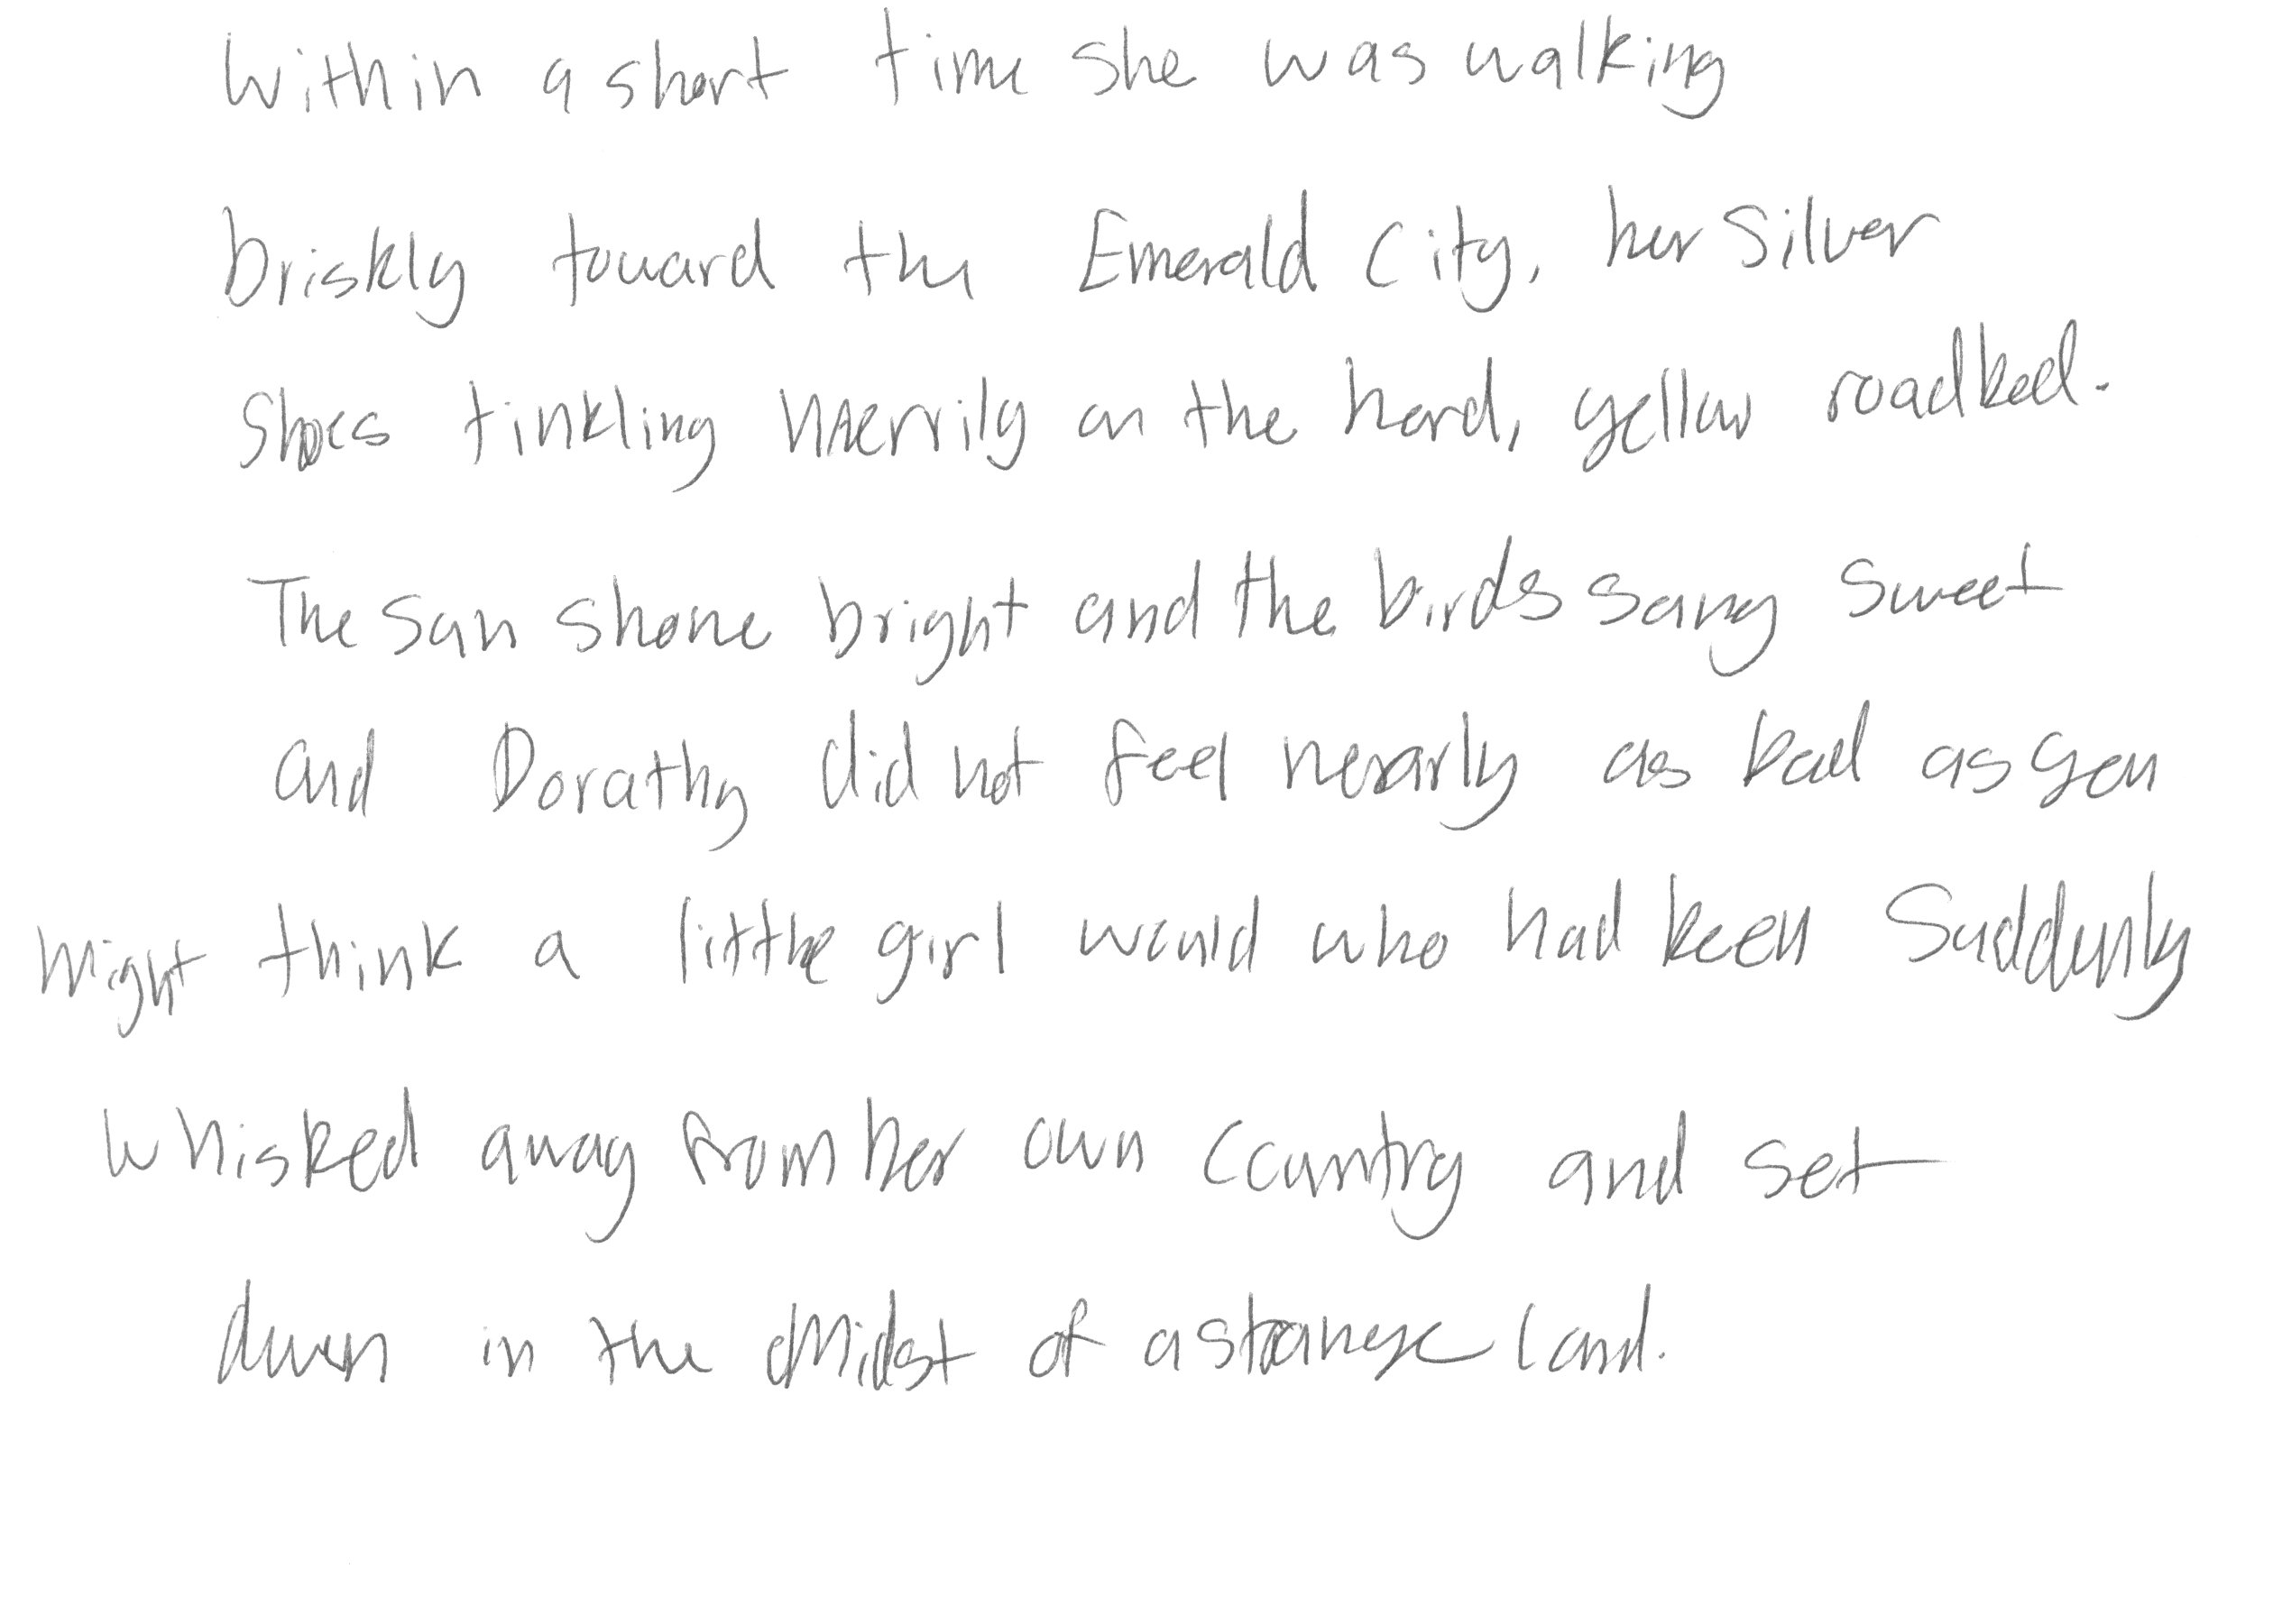 Within a short time she was walking
briskly toward the Emerald City, her Silver
Shoes tinkling merrily on the hard, yellow roadbed.
The sun shone bright and the birds sang sweet
and Dorothy did not feel nearly as bad as you
might think a little girl would who had been suddenly
whisked away from her own country and set
down in the midst of a strange land.